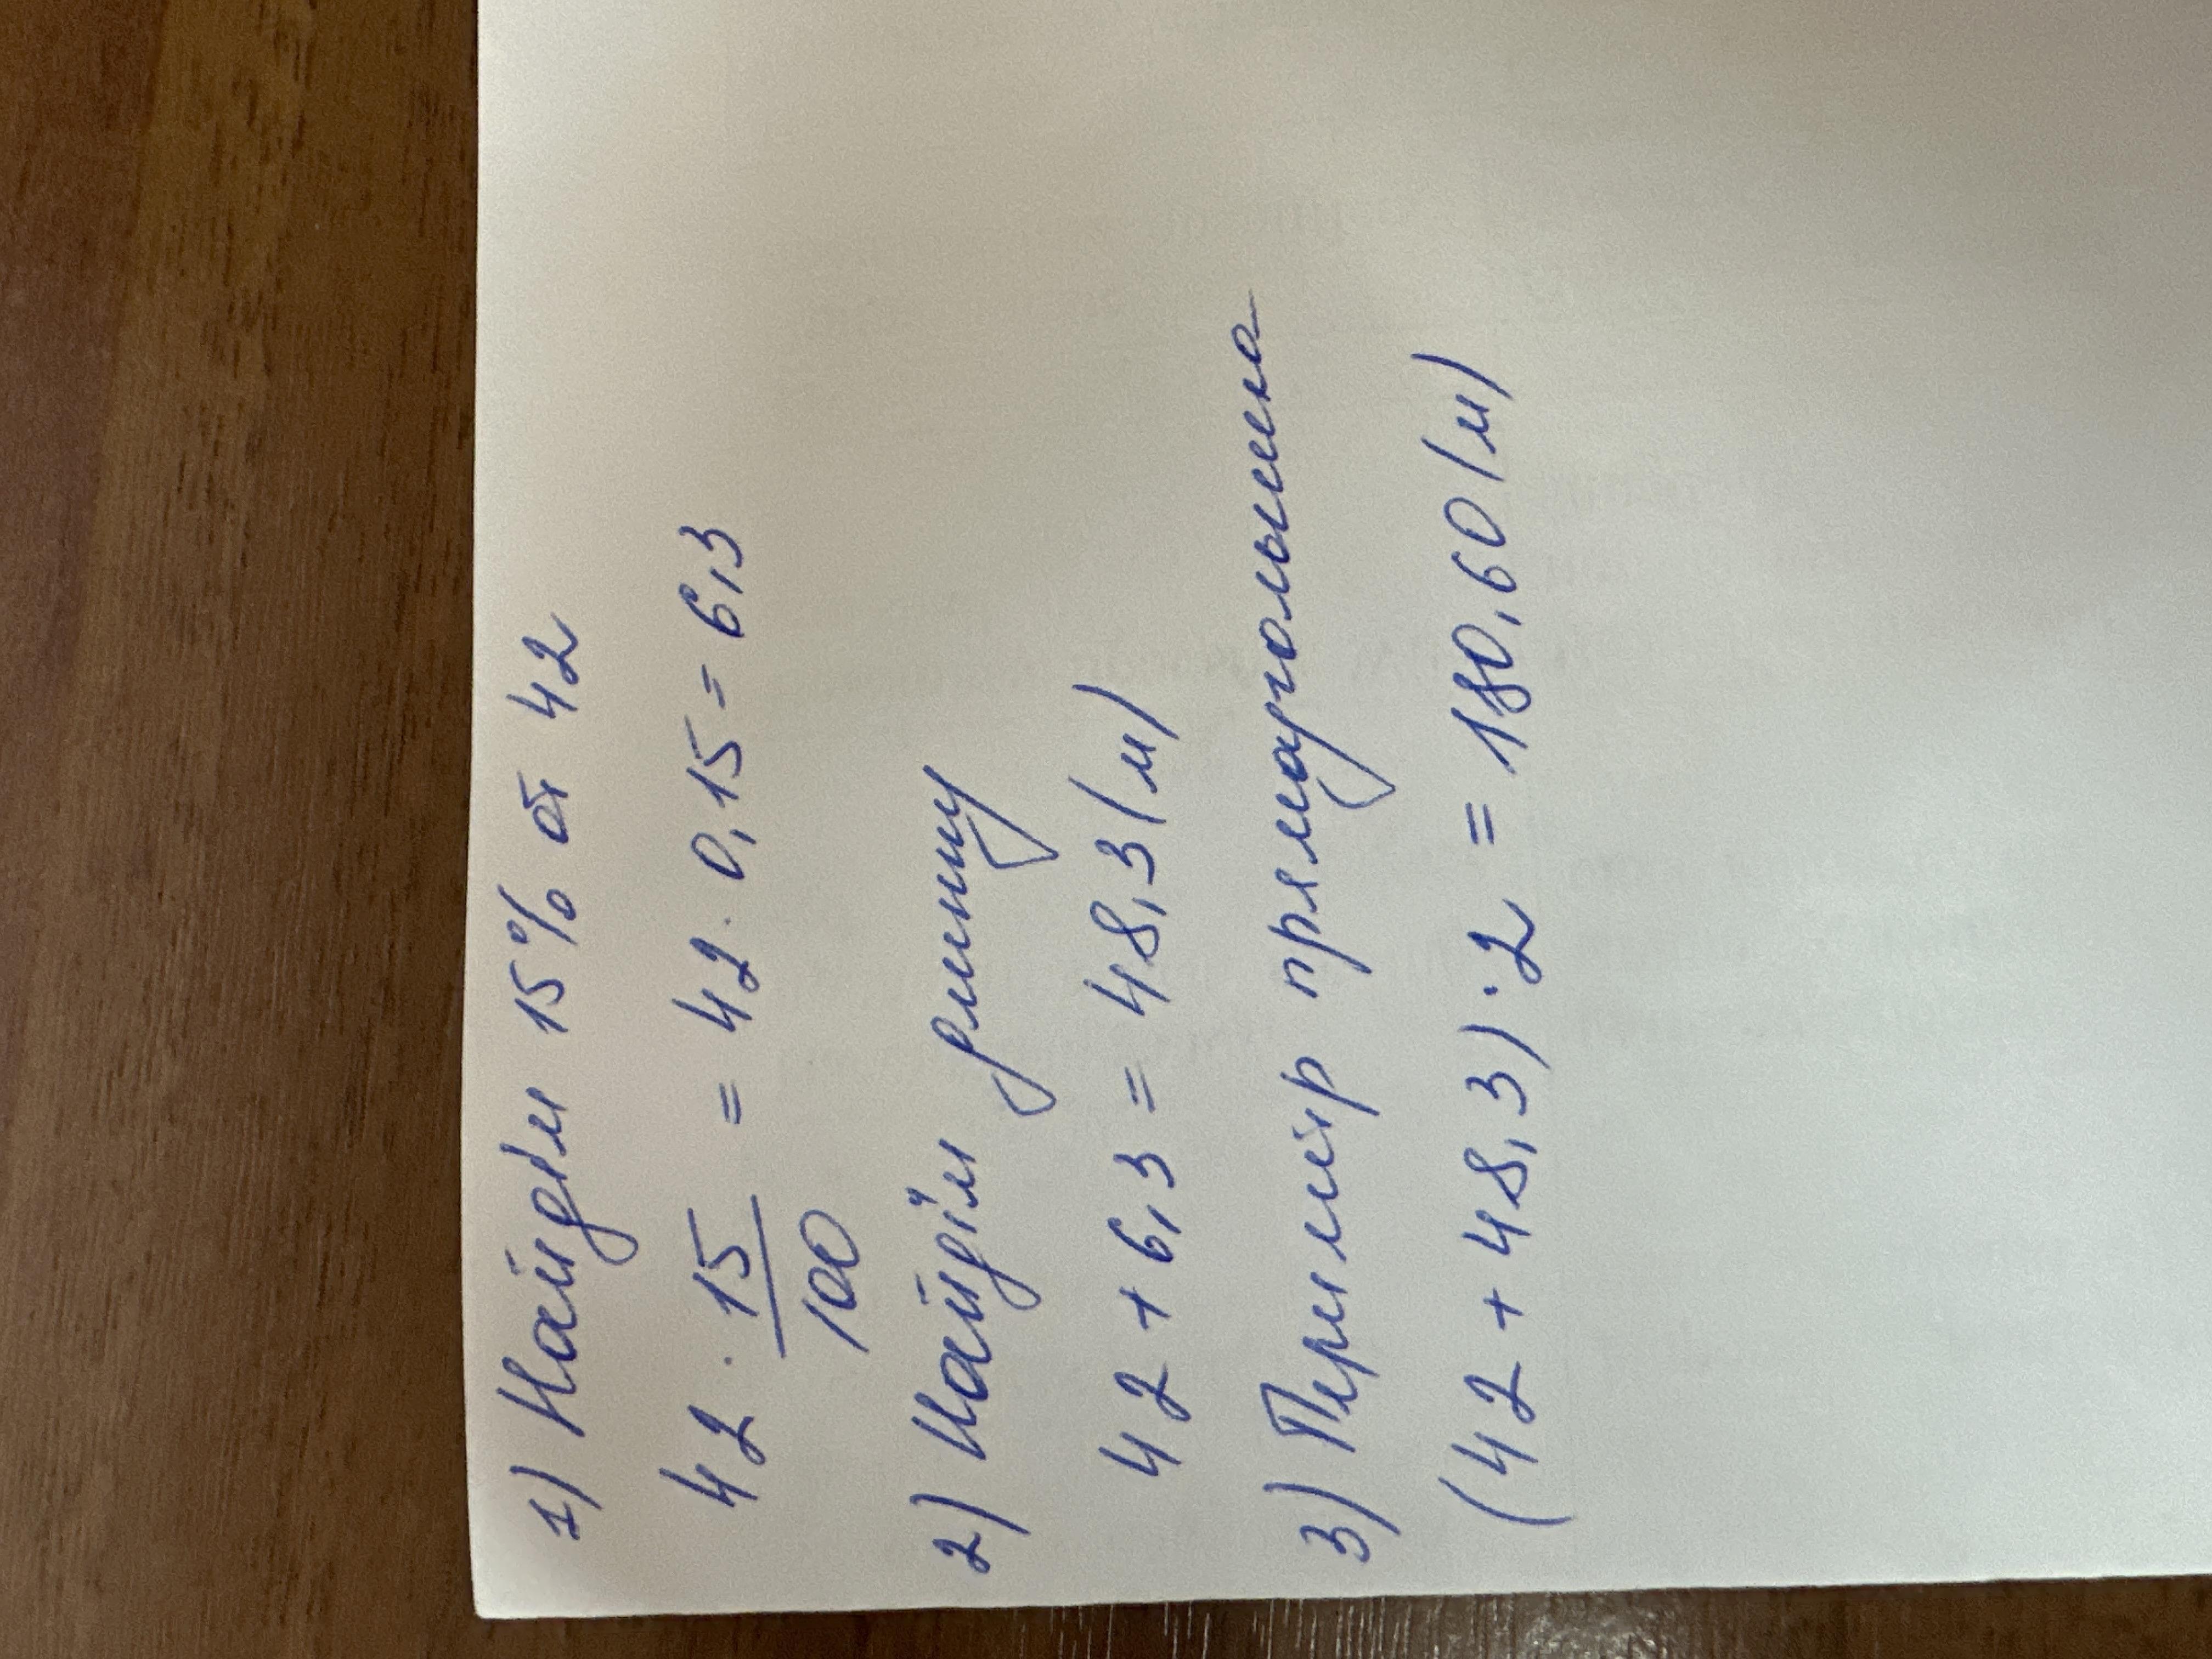 1) Найдём 15% от 42
42 · 15/100 = 42 · 0,15 = 6,3
2) Найдём длину
42 + 6,3 = 48,3 (м)
3) Периметр прямоугольника
(42 + 48,3) · 2 = 180,60 (м)